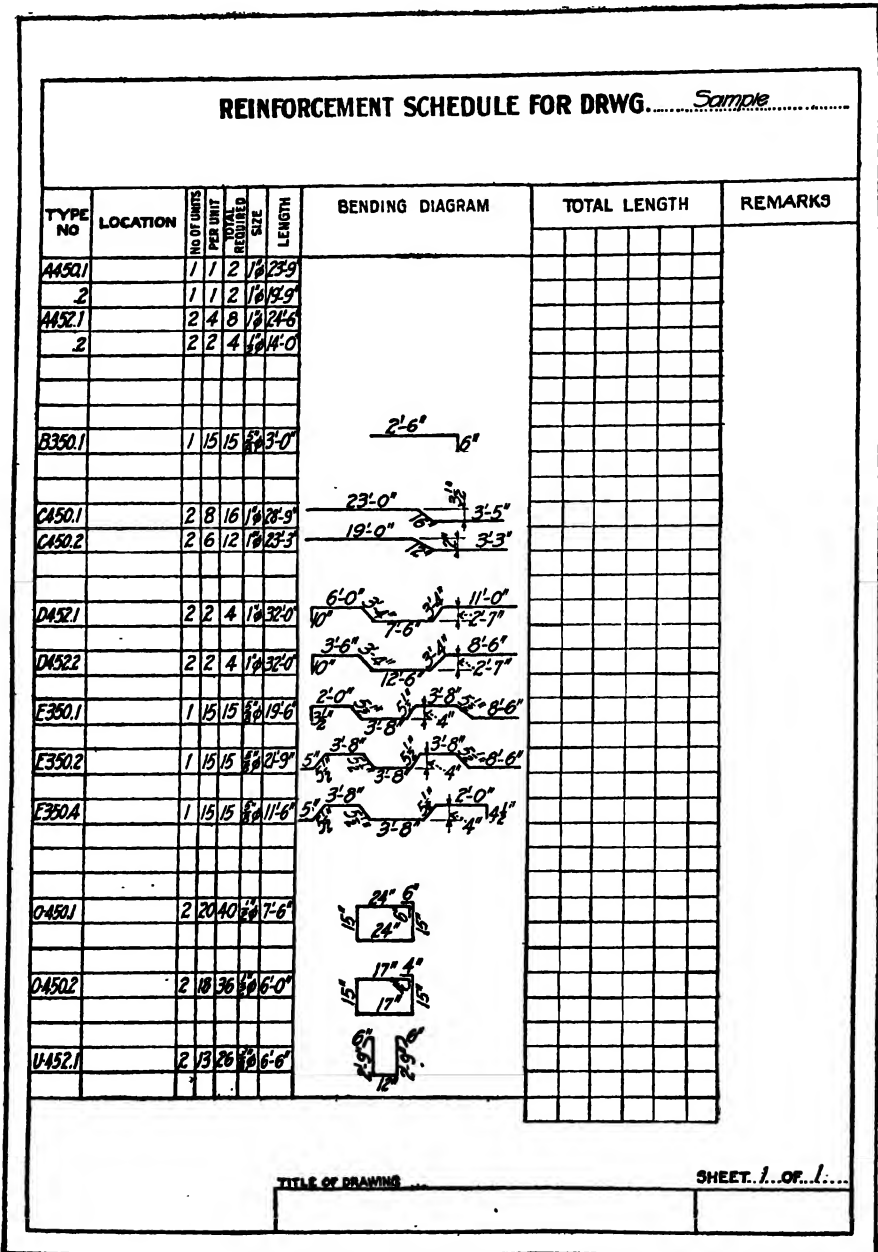 REINFORCEMENT SCHEDULE FOR DRWG. Sample
TYPE NO LOCATION NO OF UNITS PER UNIT TOTAL REQUIRED SIZE LENGTH BENDING DIAGRAM TOTAL LENGTH REMARKS
A450.1 1 1 2 1"ø 23'-9"
.2 1 1 2 1"ø 19'-9"
A452.1 2 4 8 1"ø 24'-6"
.2 2 2 4 ½"ø 14'-0"
B350.1 1 15 15 ⅝"ø 3'-0" 2'-6" 6"
C450.1 2 8 16 1"ø 28'-9" 23'-0" 16" 3'-5"
C450.2 2 6 12 1"ø 23'-3" 19'-0" 12" 2" 3'-3"
D452.1 2 2 4 1"ø 32'-0" 10" 6'-0" 3'-4" 7'-6" 3'-4" 11'-0" 2'-7"
D452.2 2 2 4 1"ø 32'-0" 10" 3'-6" 3'-4" 12'-6" 3'-4" 8'-6" 2'-7"
E350.1 1 15 15 ⅝"ø 19'-6" 3½" 2'-0" 5½" 3'-8" 5½" 3'-8" 4" 5½" 8'-6"
E350.2 1 15 15 ⅝"ø 21'-9" 5" 5½" 3'-8" 5½" 3'-8" 5½" 3'-8" 4" 5½" 8'-6"
E350.4 1 15 15 ⅝"ø 11'-6" 5" 5½" 3'-8" 5½" 3'-8" 5½" 2'-0" 4" 4½"
O-450.1 2 20 40 ½"ø 7'-6" 24" 6" 6" 15" 24" 15"
O-450.2 2 18 36 6'-0" 17" 4" 15" 17" 15"
U-452.1 2 13 26 6'-6" 6" 6" 2'-9" 12" 2'-9"
TITLE OF DRAWING
SHEET 1 OF 1